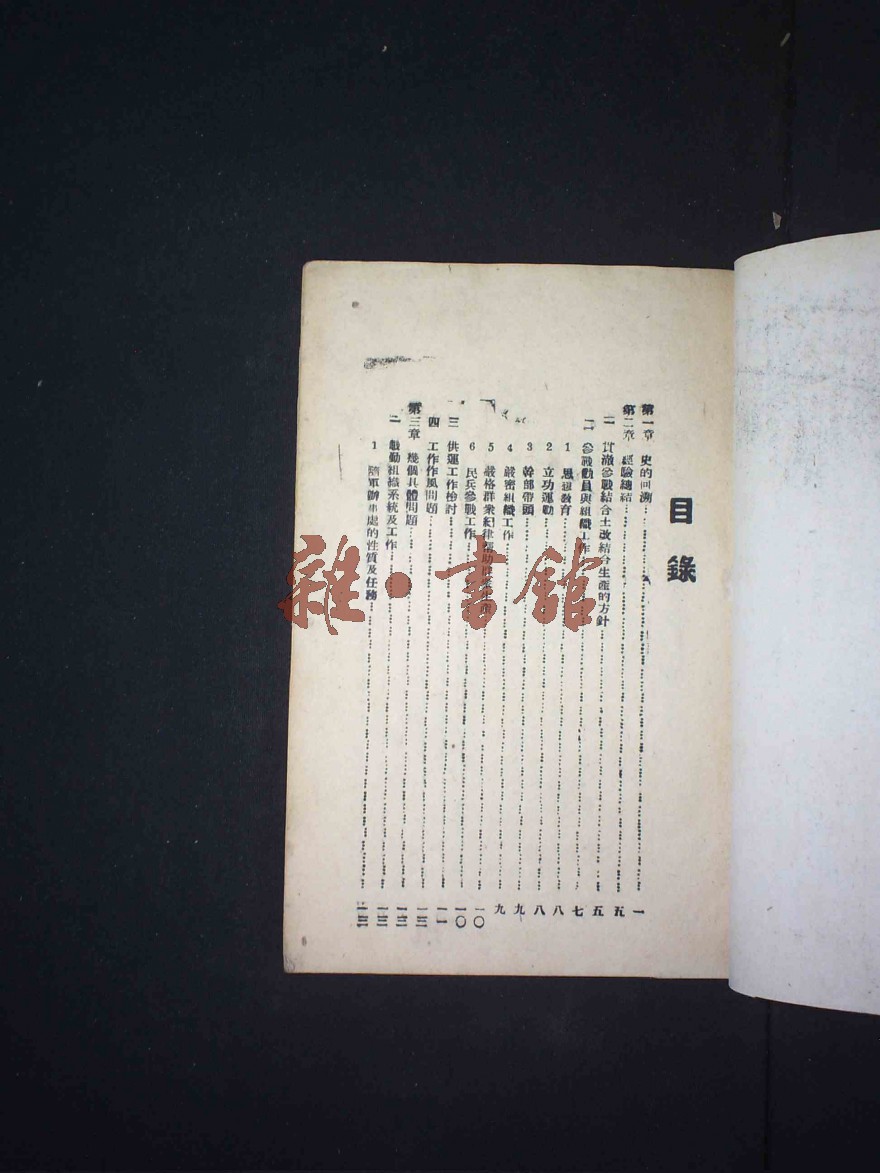 目錄
第一章 史的回溯 一
第二章 經驗總結 五
一 貫澈參戰結合土改結合生產的方針 五
二 參戰動員與組織工作 七
1 思想教育 八
2 立功運動 八
3 幹部帶頭 九
4 嚴密組織工作 九
5 嚴格群衆紀律幫助群衆生產 一〇
6 民兵參戰工作 一〇
三 供運工作檢討 一一
四 工作作風問題
第三章 幾個具體問題
一 戰勤組織系統及工作
1 隨軍辦事處的性質及任務
雜·書館